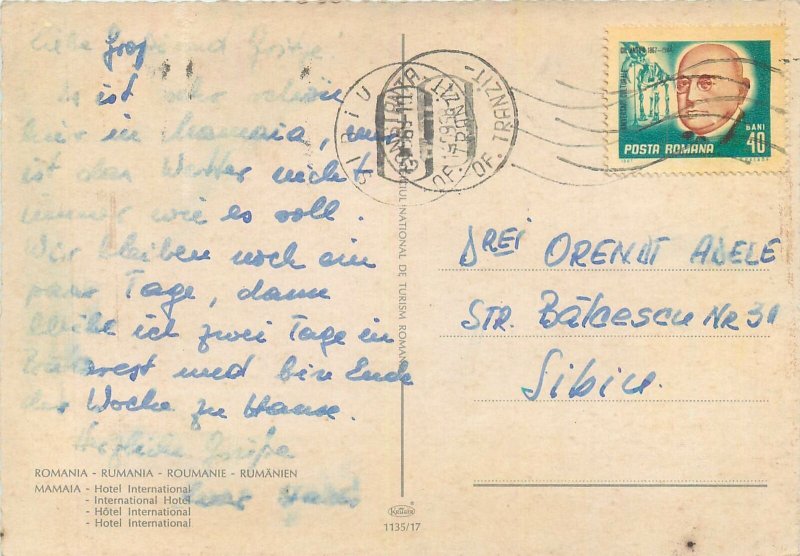 Liebe Grosi und
ist sehr schön
hier in Mamaia, nur
ist das Wetter nicht
immer wie es soll.
Wir bleiben noch ein
paar Tage, dann
bleibe ich zwei Tage in
Bukarest und bin Ende
der Woche zu Hause.
Herzliche Grüße
POSTA ROMANA
BANI
40
SIBIU
CONSTANTA
OF. TRANZIT
OFICIUL NATIONAL DE TURISM ROMANIA
OREndT ADELE
STR. Bălcescu NR 31
Sibiu.
ROMANIA - RUMANIA - ROUMANIE - RUMÄNIEN
MAMAIA - Hotel International
- International Hotel
- Hôtel International
- Hotel International
Krüger
1135/17